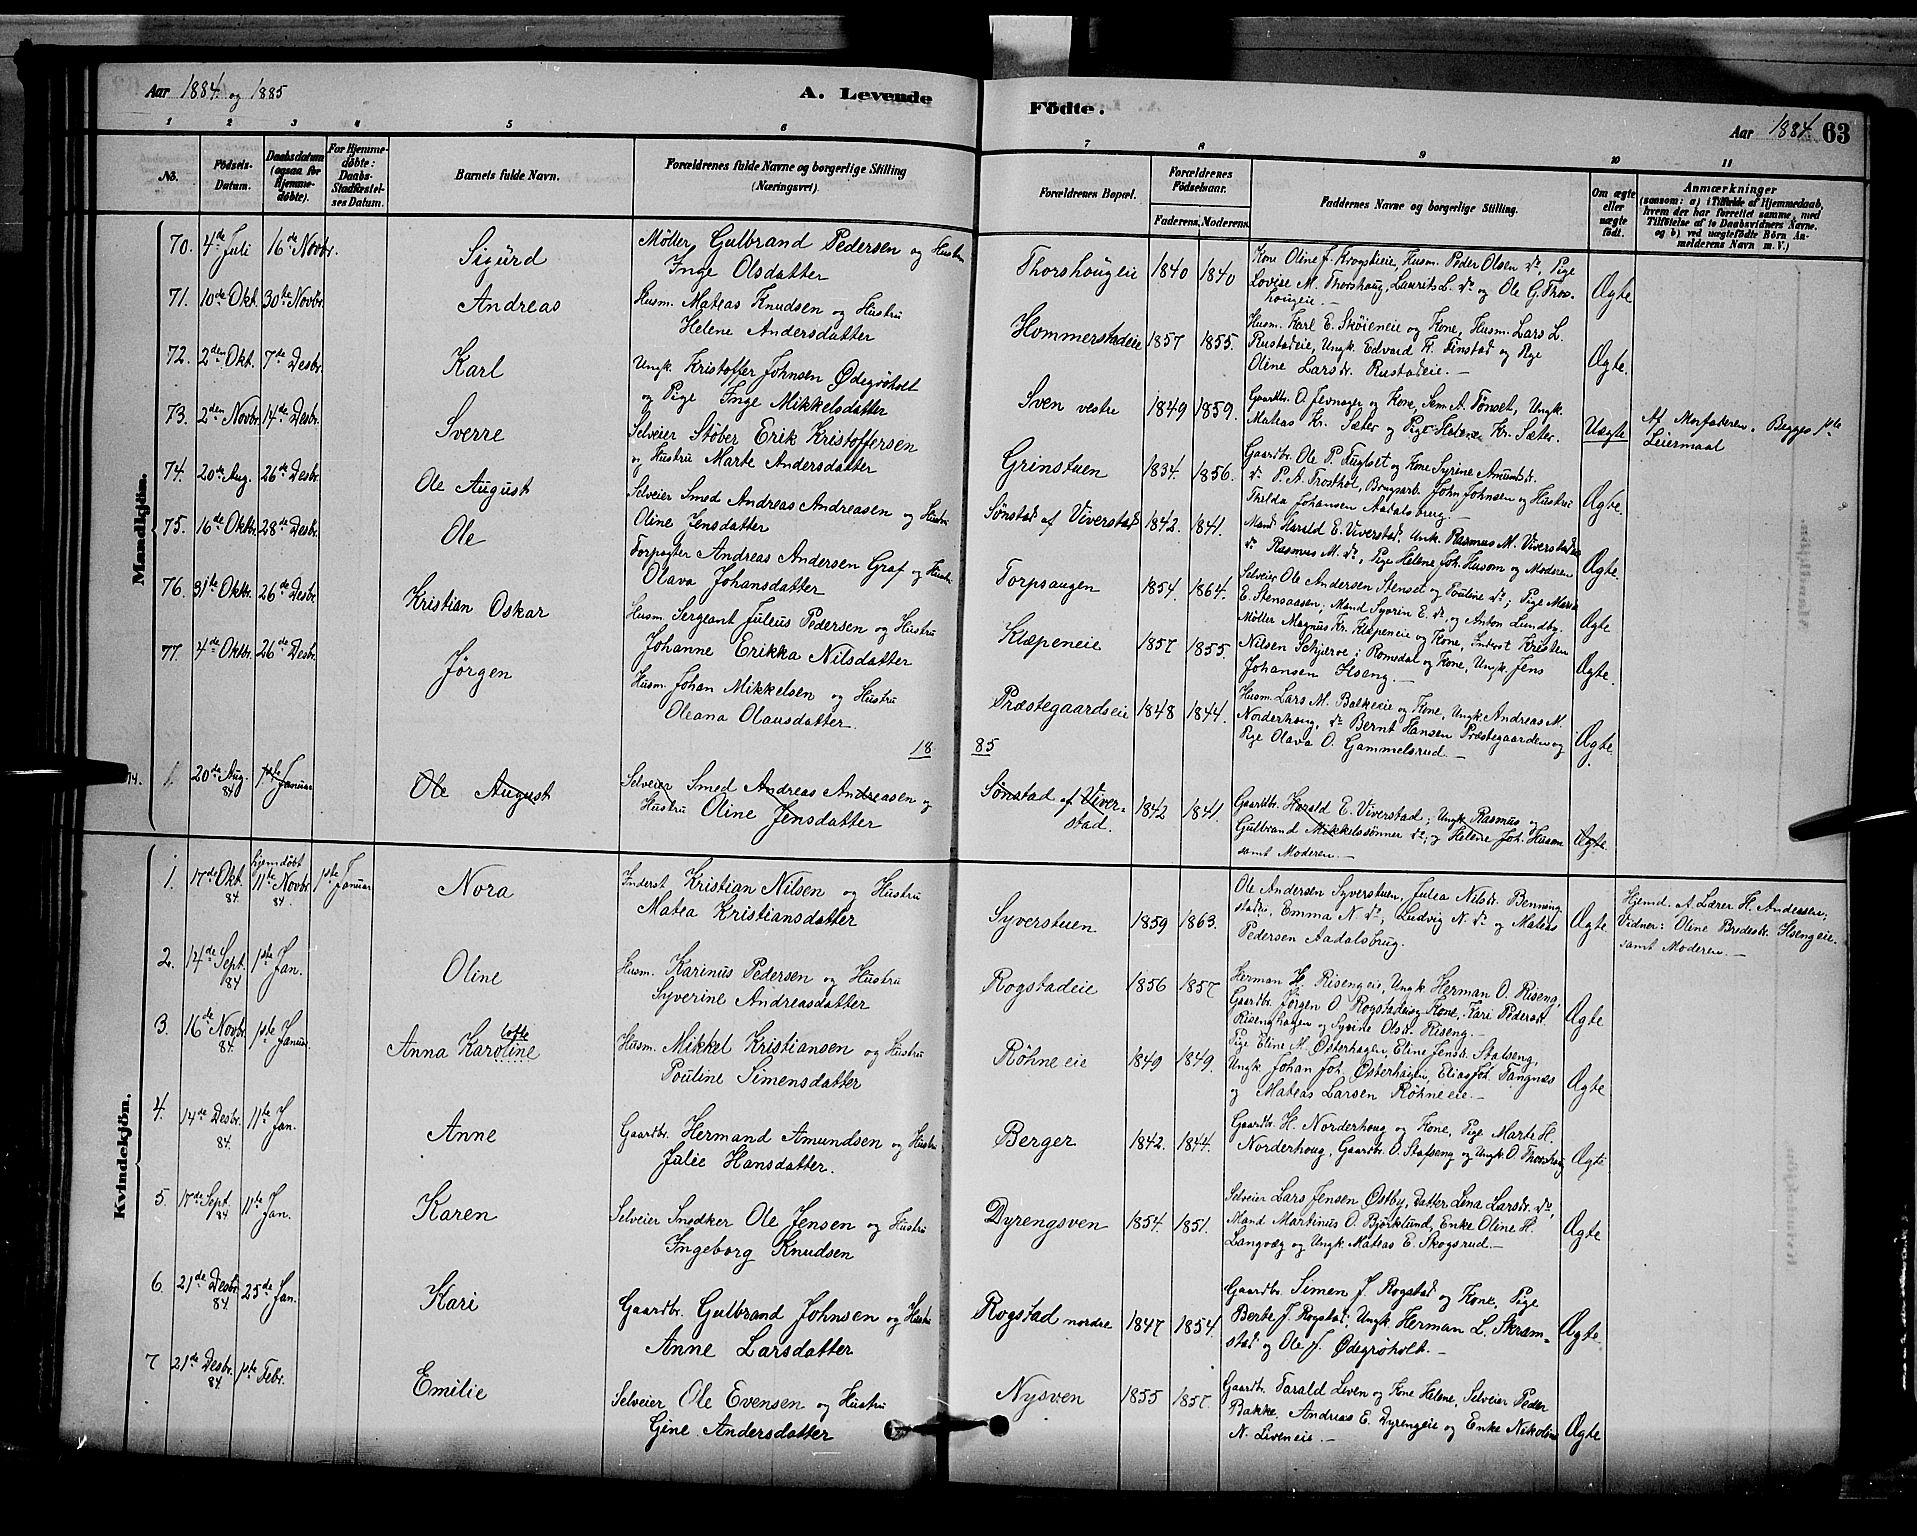 Aar 1884 og 1885
A. Levende
Födte.
Aar 1884 63
1 2 3 4 5 6 7 8 9 10 11
No.
Födsels-Datum.
Daabsdatum (ogsaa for Hjemmedöbte).
For Hjemmedöbte: Daabs-Stadfæstelses Datum.
Barnets fulde Navn.
Forældrenes fulde Navne og borgerlige Stilling (Næringsvei).
Forældrenes Bopæl.
Forældrenes Födselsaar.
Faderens. Moderens.
Faddernes Navne og borgerlige Stilling.
Om ægte eller uægte födt.
Anmærkninger
(saasom: a) i Tilfælde af Hjemmedaab, hvem der har forrettet samme, med Tilföielse af to Daabsvidners Navne. og b) ved uægtefödte Börn Anmelderens Navn m. V.)
Mandkjön.
70. 4de Juli 16de Novbr. Sigurd
Møller Gulbrand Pedersen og Hustru
Inge Olsdatter
Thorshougeie 1840 1840
Kone Oline J. Krogstieie, Husm. Peder Olsen do, Pige
Lovise M. Thorshoug, Laurits L. do og Ole G. Thors-
hougeie.
Ægte
71. 10de Okt. 30te Novbr. Andreas
Husm. Mateas Knudsen og Hustru
Helene Andersdatter
Hommerstadeie 1857 1855
Husm. Karl E. Skøieneie og Kone, Husm. Lars L.
Rustadeie, Ungk. Edvard K. Finstad og Pige
Oline Larsdr. Rustadeie.
Ægte.
72. 2den Okt. 7de Desbr. Karl
Ungk. Kristoffer Johnsen Ødegrøtholt
og Pige Inge Mikkelsdatter
Sven vestre 1849 1859.
Gaardbr. O. Jevnager og Kone, Sem. A. Tønset, Ungk.
Mateas Kr. Sæter og Pige Helene Kr. Sæter.
Uægte
Af Morfaderen. Begges 1ste
Leiermaal
73. 2den Novbr. 14de Desbr. Sverre
Selveier Støber Erik Kristoffersen
og Hustru Marte Andersdatter
Grinstuen 1834 1856.
Gaardbr. Ole P. Fuglset og Kone Syrine Amundsdr.
do P. A. Trosthol, Brugsarb. John Johnsen og Hustru
Thelda Johansen Aadalsbrug.
Ægte.
74. 20de Aug. 26de Desbr. Ole August
Selveier Smed Andreas Andreasen og Hustru
Oline Jensdatter
Sønstad af Viverstad 1842. 1841.
Mand Harald E. Viverstad. Ungk. Rasmus M. Viverstad
do Rasmus M. do, Pige Helene Joh. Husom og Moderen
Ægte.
75. 16de Oktbr. 28de Desbr. Ole
Torpagter Andreas Andersen Graf og Hustru
Olava Johansdatter
Torpsaugen 1854. 1864.
Selveier Ole Andersen Stenset og Pouline do; Pige Maria
E. Stensaasen, Mand Syvrin E. do, og Anton Lundby.
Ægte
76. 31te Oktbr. 26de Desbr. Kristian Oskar
Husm. Sergeant Juleus Pedersen og Hustru
Johanne Erikka Nilsdatter
Klæpeneie 1857 1855.
Møller Magnus Kr. Klæpeneie og Kone, Inderst Kristen
Nilsen Schjerve i Romedal og Kone, Ungk. Jens
Johansen Ilseng.
Ægte.
77. 4de Oktbr. 26de Desbr. Jørgen
Husm. Johan Mikkelsen og Hustru
Oleana Olausdatter.
Præstegaardseie 1848 1844.
Husm. Lars M. Balkeeie og Kone, Ungk. Andreas M.
Norderhoug, do Bernt Hansen Præstegaarden og
Pige Olava O. Gammelsrud.
Ægte.
18 85
74. 1. 20de Aug. 84 1ste Januar Ole August
Selveier Smed Andreas Andreasen og
Hustru Oline Jensdatter
Sønstad af Viver-
stad. 1842 1841.
Gaardbr. Harald E. Viverstad; Ungk. Rasmus og
Gulbrand Mikkelssønner do; og Helene Joh. Husom
samt Moderen.
Ægte.
Kvindekjön.
1. 17de Okt. 84 hjemdøbt 11te Novbr. 84. 1ste Januar Nora
Inderst Kristian Nilsen og Hustru
Matea Kristiansdatter
Syverstuen 1859 1863.
Ole Andersen Syverstuen, Julea Nilsdr. Benning
stadie, Emma N. do, Ludvig N. do og Mateas
Pedersen Aadalsbrug.
Ægte
Hjemd. A. Lærer H. Andersen,
Vidner: Oline Bredesdr. Ilsengeie.
samt Moderen.
2. 14de Sept. 84 1ste Jan. Oline
Husm. Karinus Pedersen og Hustru
Syverine Andreasdatter
Rogstadeie 1856 1857
Herman H. Risengeie, Ungk. Herman O. Riseng,
Gaardbr. Jørgen O. Rogstadeie og Kone, Kari Pedersdr.
Risenghagen og Syrine Olsdr. Riseng.
Ægte
3. 16de Novbr. 84 1ste Januar Anna Karoline
lotte
Husm. Mikkel Kristiansen og Hustru
Pouline Simensdatter
Røhneeie 1849 1849.
Pige Eline M. Østerhagen, Eline Jensdr. Stafseng,
Ungk. Johan Joh. Østerhagen, Elias Joh. Tangnæs
og Mateas Larsen Røhneeie.
Ægte
4. 14de Desbr. 84 11te Jan. Anne
Gaardbr. Hermand Amundsen og Hustru
Julie Hansdatter.
Berger 1842. 1844.
Gaardbr. H. Norderhoug og Kone, Pige Marte H.
Norderhoug, Gaardbr. O. Stafseng og Ungk. O. Thorshoug
Ægte
5. 17de Sept. 84 11te Jan. Karen
Selveier Snedker Ole Jensen og Hustru
Ingeborg Knudsen
Dyrengsven 1854. 1851.
Selveier Lars Jensen Østby, Datter Lina Larsdr. do,
Mand Martinus O. Bjørklund, Enke Oline H.
Langvæg og Ungk. Mateas E. Skogsrud.
Ægte
6. 21de Desbr. 84 25de Jan. Kari
Gaardbr. Gulbrand Johnsen og Hustru
Anne Larsdatter
Rogstad nordre 1847 1854.
Gaardbr. Simen J. Rogstad og Kone, Pige
Berte J. Rogstad, Ungk. Herman L. Skram-
stad og Ole J. Ødegrøholt.
Ægte
7 21de Desbr. 84 1ste Febr. Emilie
Selveier Ole Evensen og Hustru
Gine Andersdatter
Nysven 1855 1857.
Gaardbr. Tarald Leven og Kone Helene, Selveier Peder
Bakke, Andreas E. Dyrengeie og Enke Nikoline
N. Leveneie.
Ægte